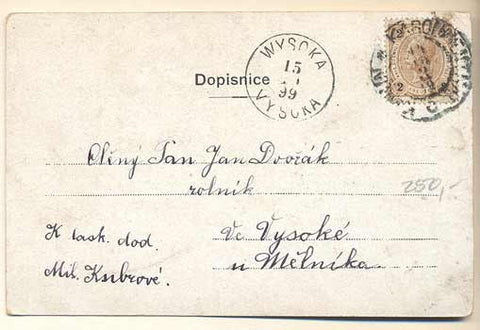 WYSOKA
15
99
VYSOKA
KAROLIN
2
Dopisnice
Ctěný Pan Jan Dvořák
rolník
250,-
K lask. dod.
Ve Vysoké
Mil. Kubrové.
u Mělníka.